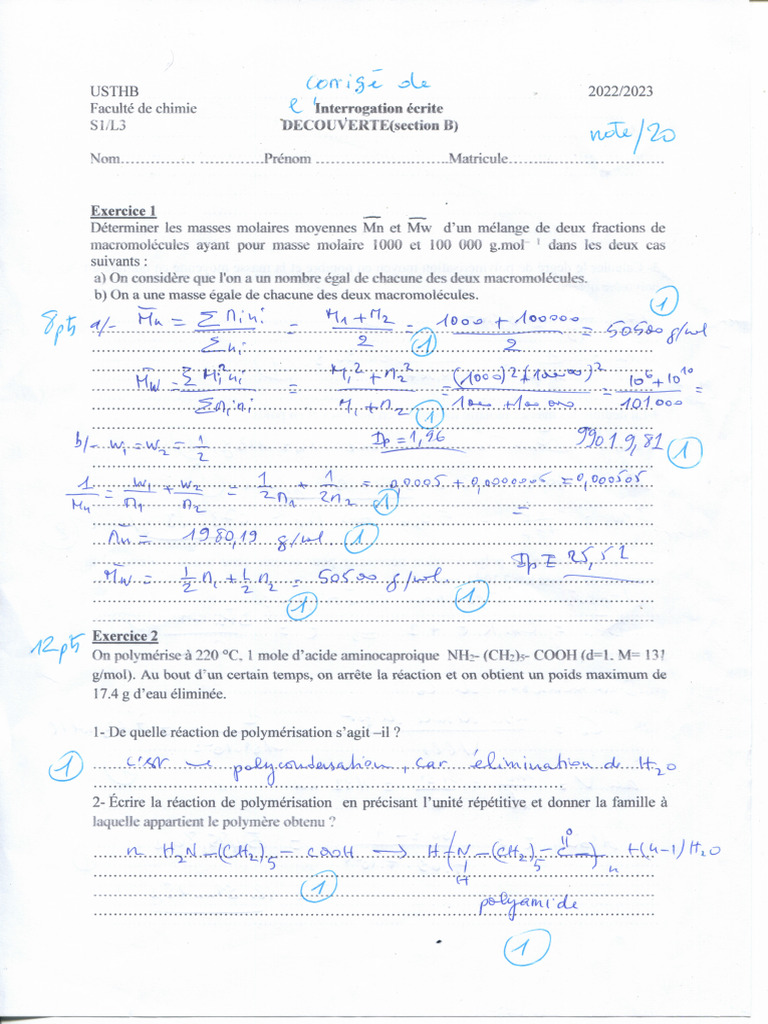 corrigé de
USTHB 2022/2023
Faculté de chimie l'Interrogation écrite
S1/L3 DECOUVERTE(section B) note/20
Nom………………… …………………Prénom ………………………Matricule…………………………………
Exercice 1
Déterminer les masses molaires moyennes M̅n et M̅w d'un mélange de deux fractions de
macromolécules ayant pour masse molaire 1000 et 100 000 g.mol⁻¹ dans les deux cas
suivants :
a) On considère que l'on a un nombre égal de chacune des deux macromolécules.
b) On a une masse égale de chacune des deux macromolécules.
8pts a/- M̅n = ΣMini / Σni = (M1 + M2) / 2 = (1000 + 100000) / 2 = 50500 g/mol
1 1
M̅w = ΣMi²ni / ΣMini = (M1² + M2²) / (M1 + M2) = ((1000)² + (100000)²) / (1000 + 100 000) = (10⁶ + 10¹⁰) / 101000 =
1
b/- w1 = w2 = 1/2 Dp = 1,96 99019,81 1
1/Mn = w1/M1 + w2/M2 = 1/2M1 + 1/2M2 = 0,0005 + 0,0000005 = 0,000505
1 =
M̅n = 1980,19 g/mol 1
Dp = 25,51
M̅w = 1/2 M1 + 1/2 M2 = 50500 g/mol
1 1
12pts Exercice 2
On polymérise à 220 °C, 1 mole d'acide aminocaproique NH₂- (CH₂)₅- COOH (d=1, M= 131
g/mol). Au bout d'un certain temps, on arrête la réaction et on obtient un poids maximum de
17.4 g d'eau éliminée.
1- De quelle réaction de polymérisation s'agit –il ?
1 c'est une polycondensation, car élimination de H₂O
2- Écrire la réaction de polymérisation en précisant l'unité répétitive et donner la famille à
laquelle appartient le polymère obtenu ?
n H₂N – (CH₂)₅ – COOH ⟶ H (N(H) – (CH₂)₅ – C(=O) )n + (n-1) H₂O
1
polyamide
1